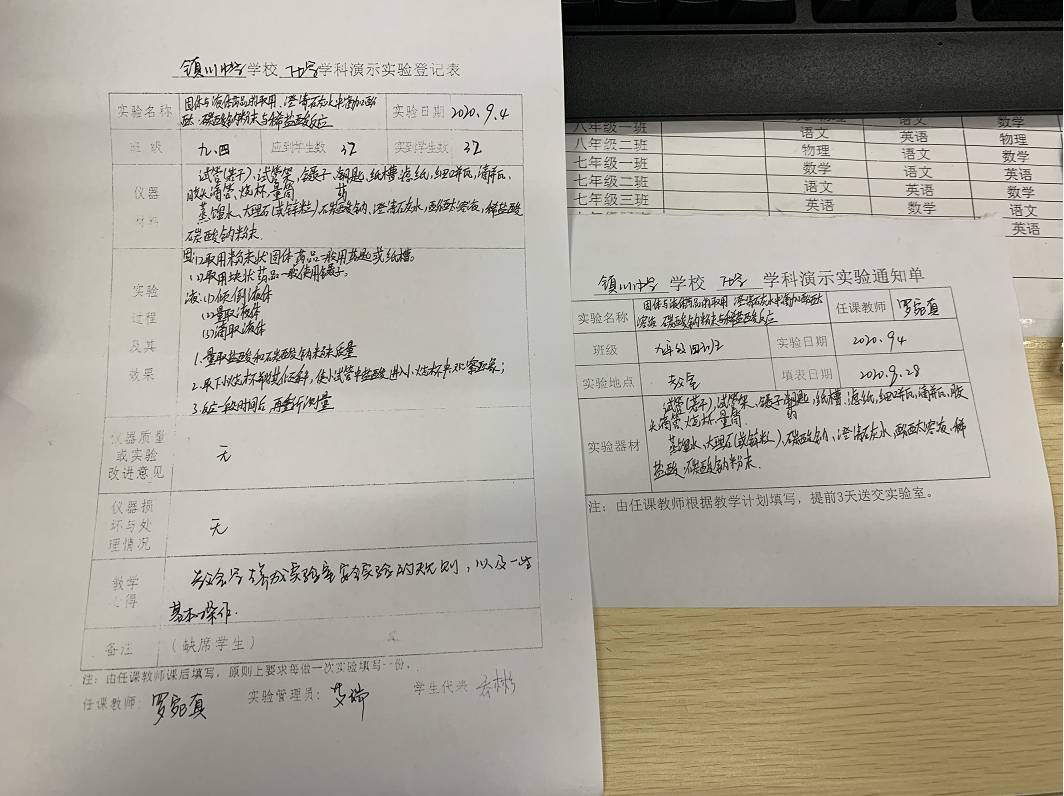 镇川中学学校 化学学科演示实验登记表
实验名称 固体与液体药品的取用、澄清石灰水中滴加酚酞
碳酸钠粉末与稀盐酸反应
实验日期 2020.9.4
班级 九.四 应到学生数 32 实到学生数 32
仪器材料
试管(若干)、试管架、镊子、药匙、纸槽、滤纸、细口瓶、滴瓶、
胶头滴管、烧杯、量筒
蒸馏水、大理石(或锌粒)、碳酸钠、澄清石灰水、酚酞溶液、稀盐酸
碳酸钠粉末.
实验过程及其效果
固:(1)取用粉末状固体药品一般用药匙或纸槽。
(2)取用块状药品一般使用镊子。
液:(1)倾倒液体
(2)量取液体
(3)滴取液体
1.量取盐酸和碳酸钠粉末质量
2.取下小烧杯
使小试管中盐酸进入小烧杯中
3.反应一段时间后,再重新测量
仪器质量或实验改进意见 无
仪器损坏与处理情况 无
教学心得
实验室
以及一些
基本操作.
备注 (缺席学生)
注:由任课教师课后填写,原则上要求每做一次实验填写一份。
任课教师: 实验管理员: 学生代表
八年级一班 语文 英语 物理
八年级二班 物理 语文 数学
七年级一班 数学 英语 语文
七年级二班 语文 英语 数学
七年级三班 英语 数学 语文
英语
镇川中学 学校 化学 学科演示实验通知单
实验名称 固体与液体药品的取用 澄清石灰水中滴加酚酞
溶液 碳酸钠粉末与稀盐酸反应
任课教师
班级 九年级四班 实验日期 2020.9.4
实验地点 教室 填表日期 2020.9.28
实验器材
试管(若干)、试管架、镊子、药匙、纸槽、滤纸、细口瓶、滴瓶、胶
头滴管、烧杯、量筒.
蒸馏水、大理石(或锌粒)、碳酸钠、澄清石灰水、酚酞溶液、稀
盐酸、碳酸钠粉末.
注:由任课教师根据教学计划填写,提前3天送交实验室。